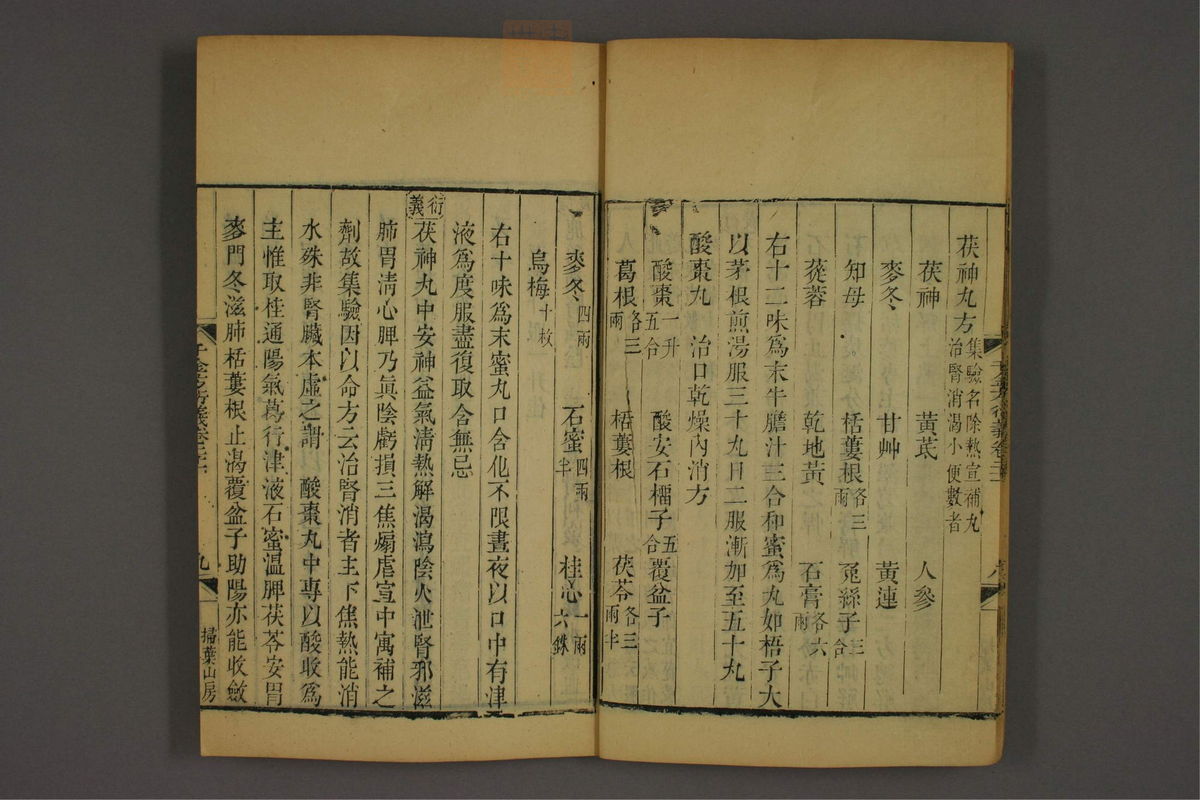 茯神丸方 集驗名除熱宣補丸治腎消渴小便數者
茯神 黃芪 人參
麥冬 甘艸 黃連
知母 栝蔞根各三兩 菟絲子三合
蓯蓉 乾地黃 石膏各六兩
右十二味爲末牛膽汁三合和蜜爲丸如梧子大
以茅根煎湯服三十丸日二服漸加至五十丸
酸棗丸 治口乾燥內消方
酸棗一升五合 酸安石榴子五合 覆盆子
葛根各三兩 栝蔞根 茯苓各三兩半
千金方衍義卷二十一
八
麥冬四兩 石蜜四兩半 桂心一兩六銖
烏梅十枚
右十味爲末蜜丸口含化不限晝夜以口中有津
液爲度服盡復取含無忌
衍義
茯神丸中安神益氣清熱解渴瀉陰火泄腎邪滋
肺胃清心脾乃眞陰虧損三焦煽虐宣中寓補之
劑故集驗因以命方云治腎消者主下焦熱能消
水殊非腎臟本虛之謂 酸棗丸中專以酸收爲
主惟取桂通陽氣葛行津液石蜜溫脾茯苓安胃
麥門冬滋肺栝蔞根止渴覆盆子助陽亦能收斂
九
掃葉山房